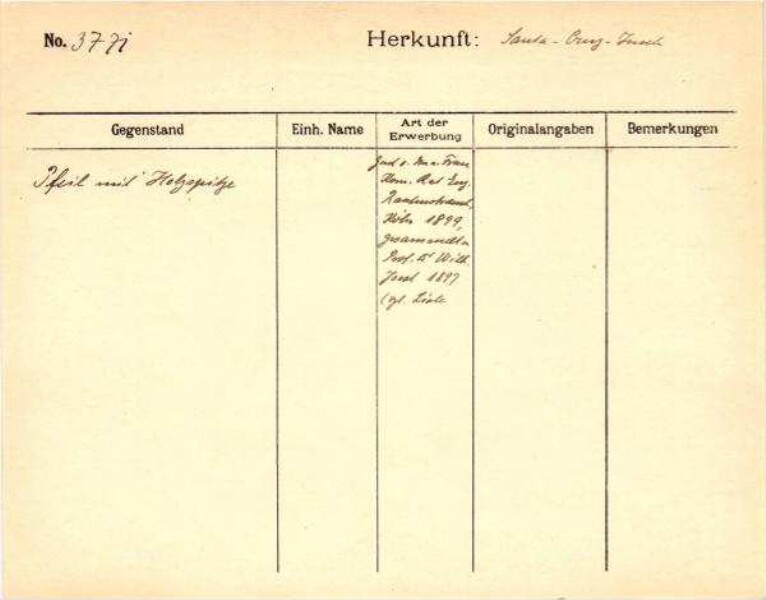 No. 377i
Herkunft: Santa-Cruz-Inseln
Gegenstand
Einh. Name
Art der
Erwerbung
Originalangaben
Bemerkungen
Pfeil mit Holzspitze
Frau
Kom. Rat Eug.
Rautenstrauch,
Köln 1899,
gesammelt v.
Prof. Dr Wilh.
Joest 1897
(vgl. Liste